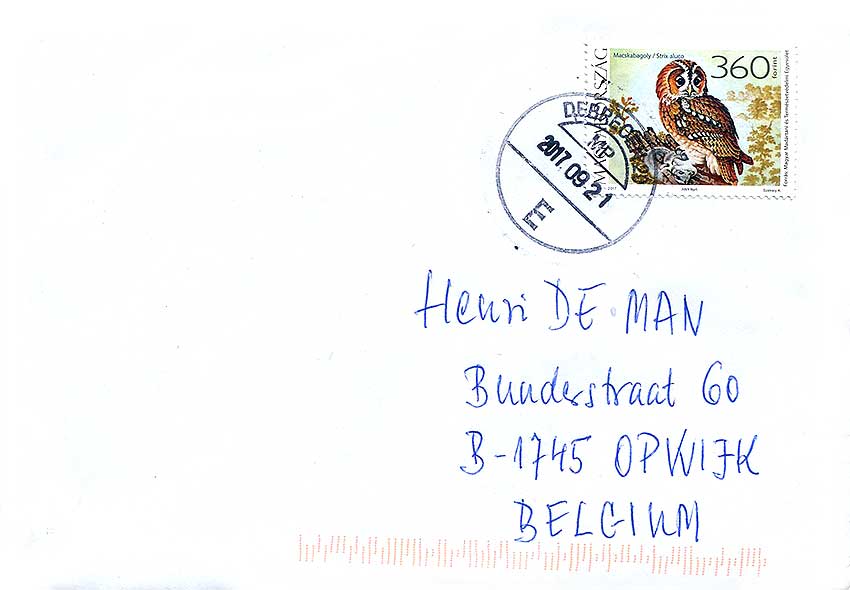 Macskabagoly / Strix aluco
360
forint
MAGYARORSZÁG
Forrás: Magyar Madártani és Természetvédelmi Egyesület
2017
ANY Nyrt.
DEBRECEN
MP
2017.09.21
E
Henri DE MAN
Bunderstraat 60
B-1745 OPWIJK
BELGIUM